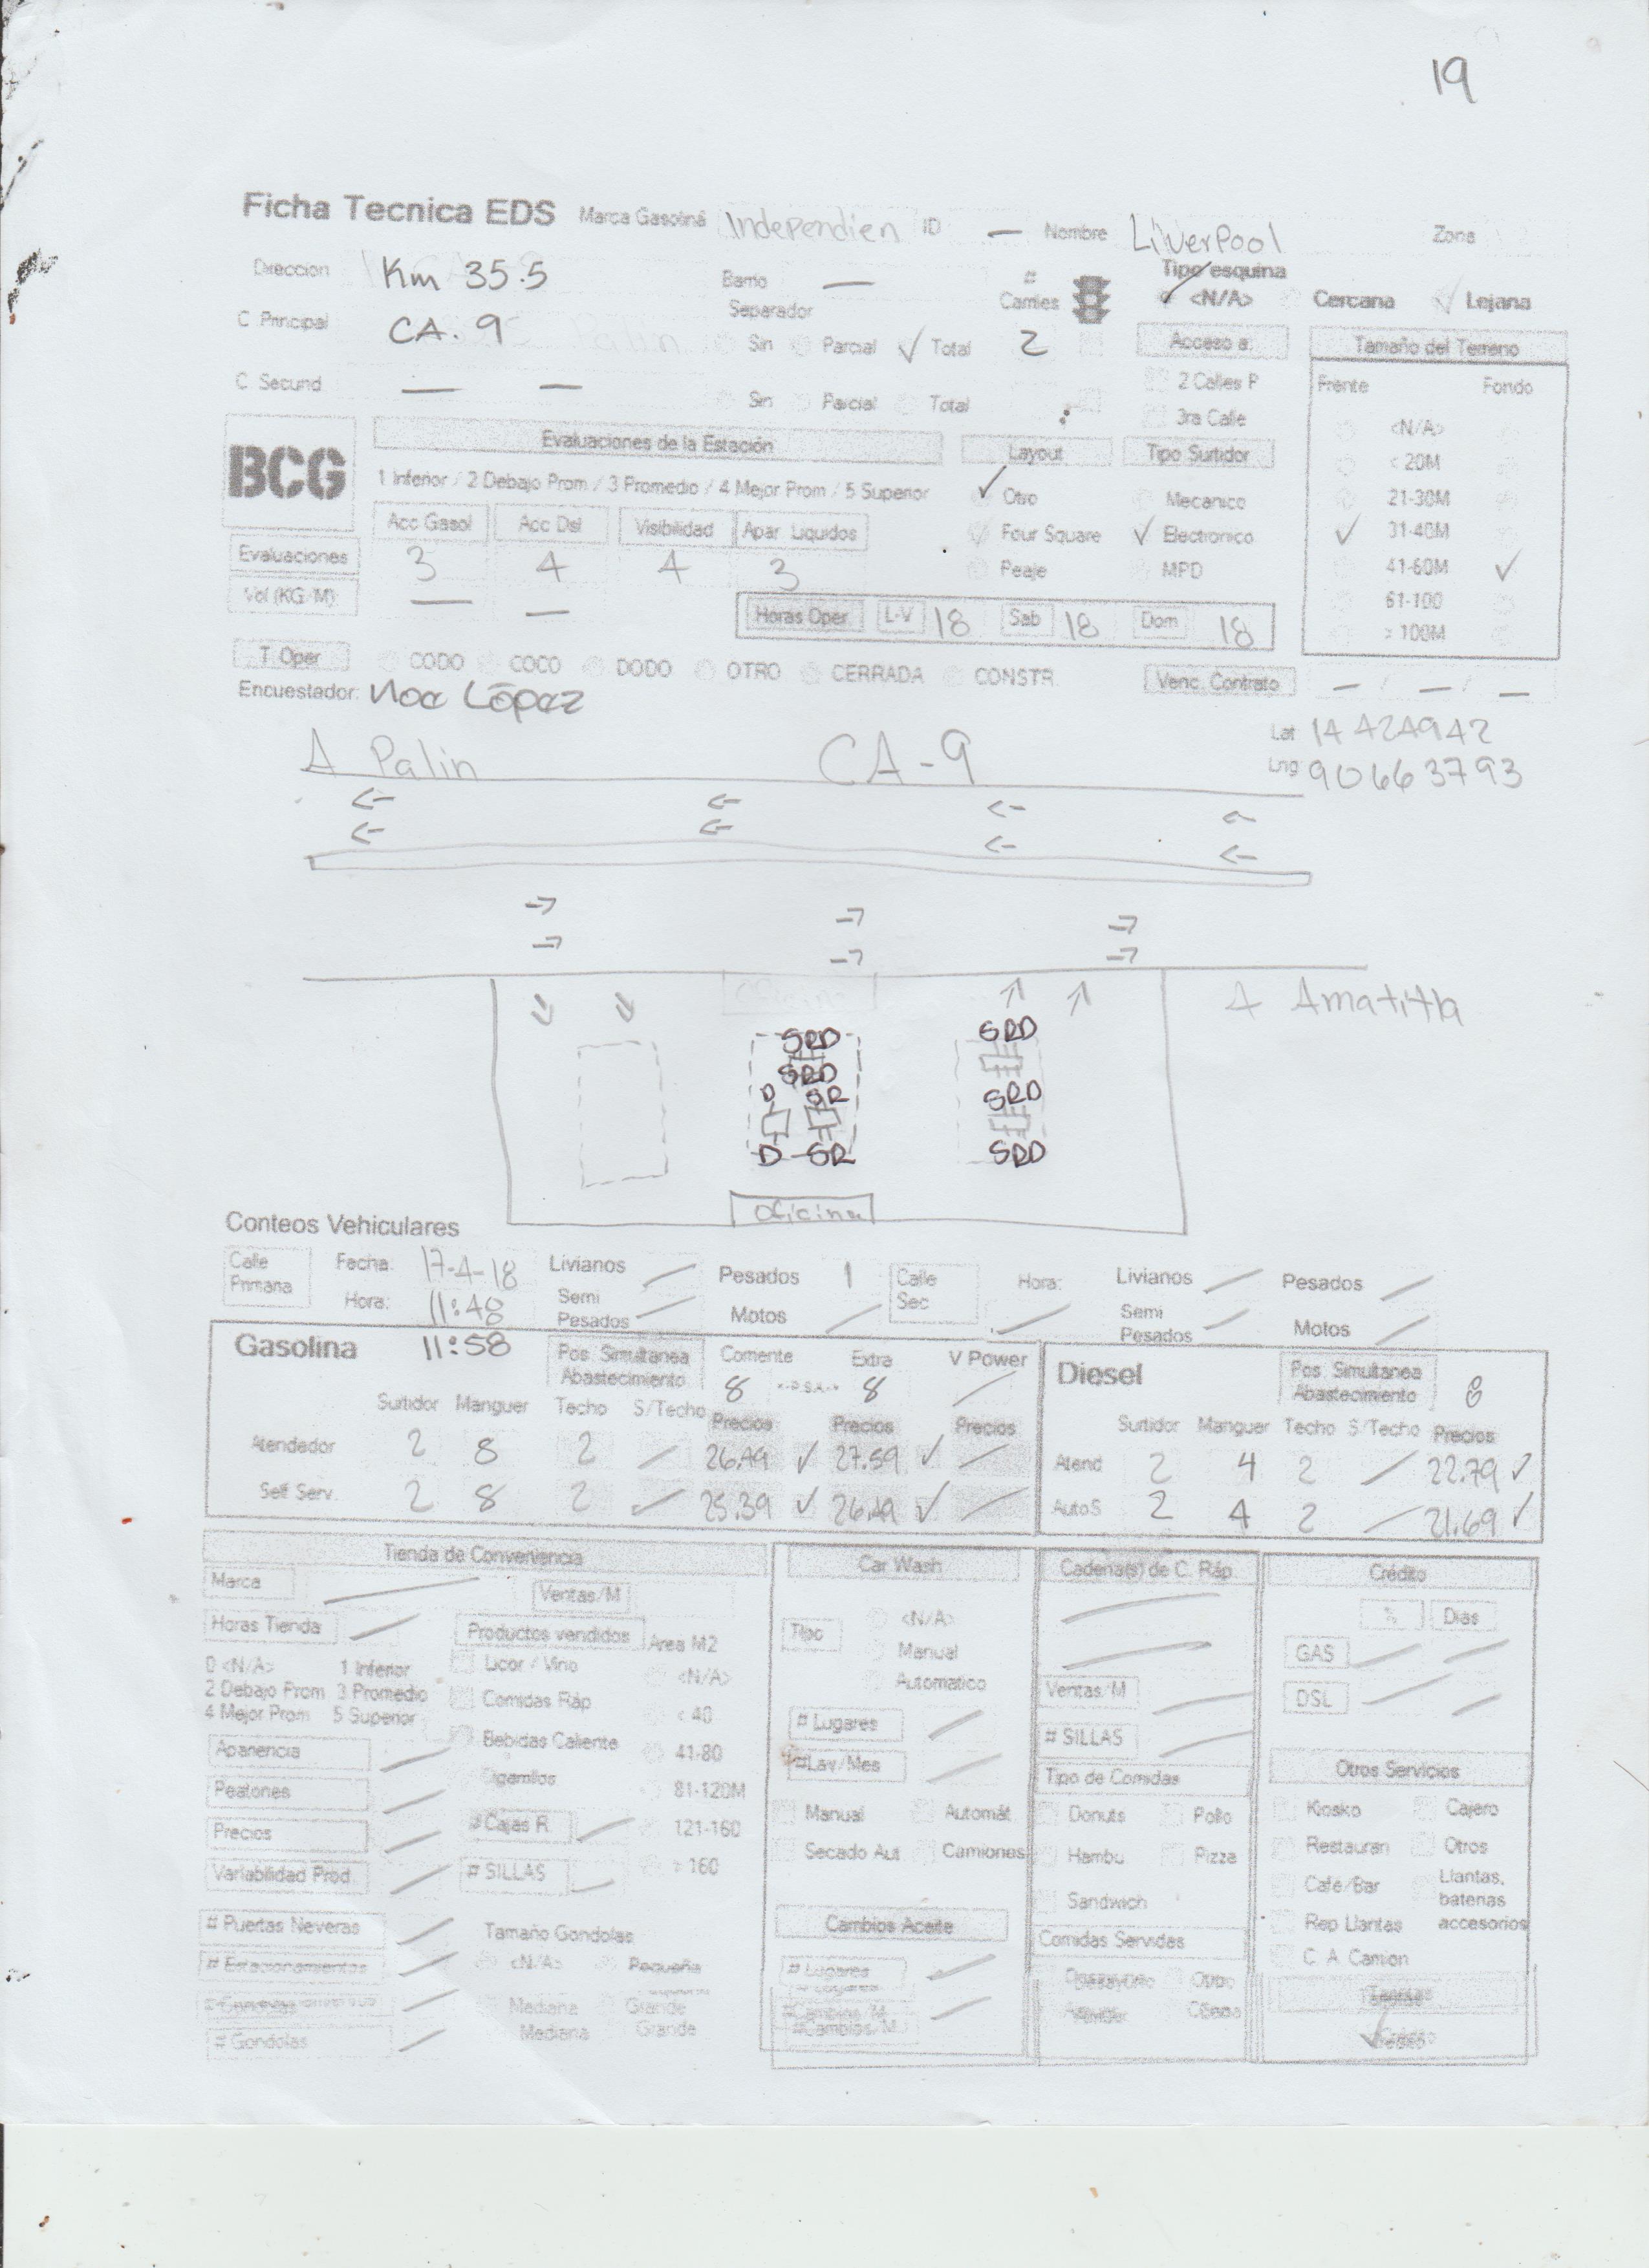 19
Ficha Tecnica EDS Marca Gasolina Independien ID — Nombre Liverpool Zona
Direccion Km 35.5 Barrio — # Carriles Tipo esquina
<N/A> Cercana Lejana
C Principal CA. 9 Separador Sin Parcial Total 2 Acceso a: Tamaño del Terreno
C Secund — — Sin Parcial Total 2 Calles P Frente Fondo
3ra Calle <N/A>
BCG Evaluaciones de la Estación Layout Tipo Surtidor < 20M
1 Inferior / 2 Debajo Prom / 3 Promedio / 4 Mejor Prom / 5 Superior Otro Mecanico 21-30M
Acc Gasol Acc Dsl Visibilidad Apar Liquidos Four Square Electronico 31-40M
Evaluaciones 3 4 4 3 Peaje MPD 41-60M
Vol (KG/M) — — Horas Oper L-V 18 Sab 18 Dom 18 61-100
> 100M
T Oper CODO COCO DODO OTRO CERRADA CONSTR. Venc. Contrato — / — / —
Encuestador: Noe López
Lat 14 424942
Lng 90663793
A Palin CA-9
Oficina A Amatitla
SRD SRD
SRD
D SR SRD
D SR SRD
Oficina
Conteos Vehiculares
Calle Primaria Fecha: 17-4-18 Livianos Pesados 1 Calle Sec Hora: Livianos Pesados
Hora: 11:48 Semi Pesados Motos Semi Pesados Motos
Gasolina 11:58 Pos. Simultanea Abastecimiento Corriente Extra V Power Diesel Pos. Simultanea Abastecimiento 8
8 8
Surtidor Manguer Techo S/Techo Precios Precios Precios Surtidor Manguer Techo S/Techo Precios
Atendedor 2 8 2 26.49 27.59 Atend 2 4 2 22.79
Self Serv. 2 8 2 25.39 26.49 AutoS 2 4 2 21.69
Tienda de Conveniencia Car Wash Cadena(s) de C. Ráp. Crédito
Marca Ventas/M % Dias
Horas Tienda Productos vendidos Area M2 Tipo <N/A> GAS
0 <N/A> 1 Inferior Licor / Vino <N/A> Manual
2 Debajo Prom 3 Promedio Comidas Ráp < 40 Automatico Ventas/M DSL
4 Mejor Prom 5 Superior Bebidas Caliente # Lugares # SILLAS
Apariencia 41-80 #Lav/Mes Tipo de Comidas Otros Servicios
Peatones Cigarrillos 81-120M Manual Automát Donuts Pollo Kiosko Cajero
Precios # Cajas R 121-160 Secado Aut Camiones Hambu Pizza Restauran Otros
Variabilidad Prod. # SILLAS > 160 Sandwich Café/Bar Llantas, baterias accesorios
# Puertas Neveras Tamaño Gondolas Cambios Aceite Comidas Servidas Rep Llantas
# Estacionamientos <N/A> Pequeña # Lugares C. A. Camion
# Gondolas Mediana Grande #Cambios/M
# Gondolas Mediana Grande #Cambios/M